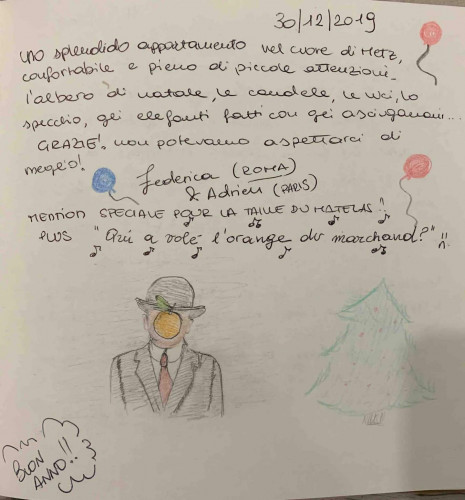 30/12/2019
uno splendido appartamento nel cuore di Metz,
confortabile e pieno di piccole attenzioni.
l'albero di natale, le candele, le luci, lo
specchio, gli elefanti fatti con gli asciugamani...
GRAZIE! non potevamo aspettarci di
meglio!
Federica (ROMA)
& Adrien (PARIS)
MENTION SPECIALE POUR LA TAILLE DU MATELAS!!
PLUS "Qui a volé l'orange du marchand?" !!
BUON
ANNO!!